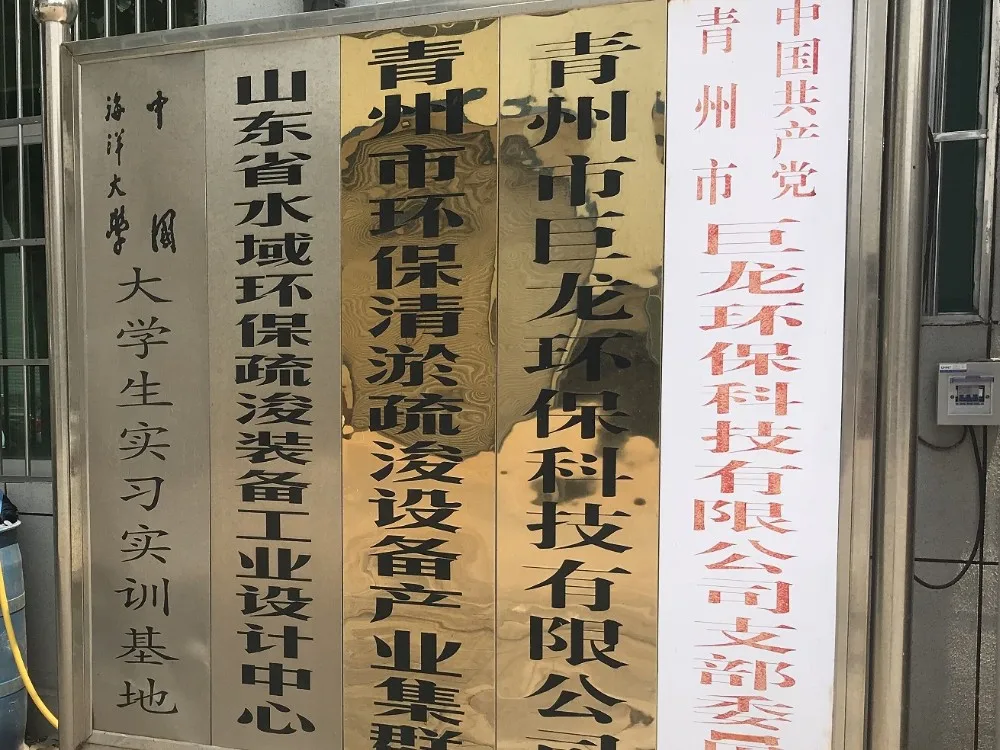 中国共产党
青州市
巨龙环保科技有限公司支部委员
青州市巨龙环保科技有限公司
青州市环保清淤疏浚设备产业集群
山东省水域环保疏浚装备工业设计中心
中国
海洋大學
大学生实习实训基地